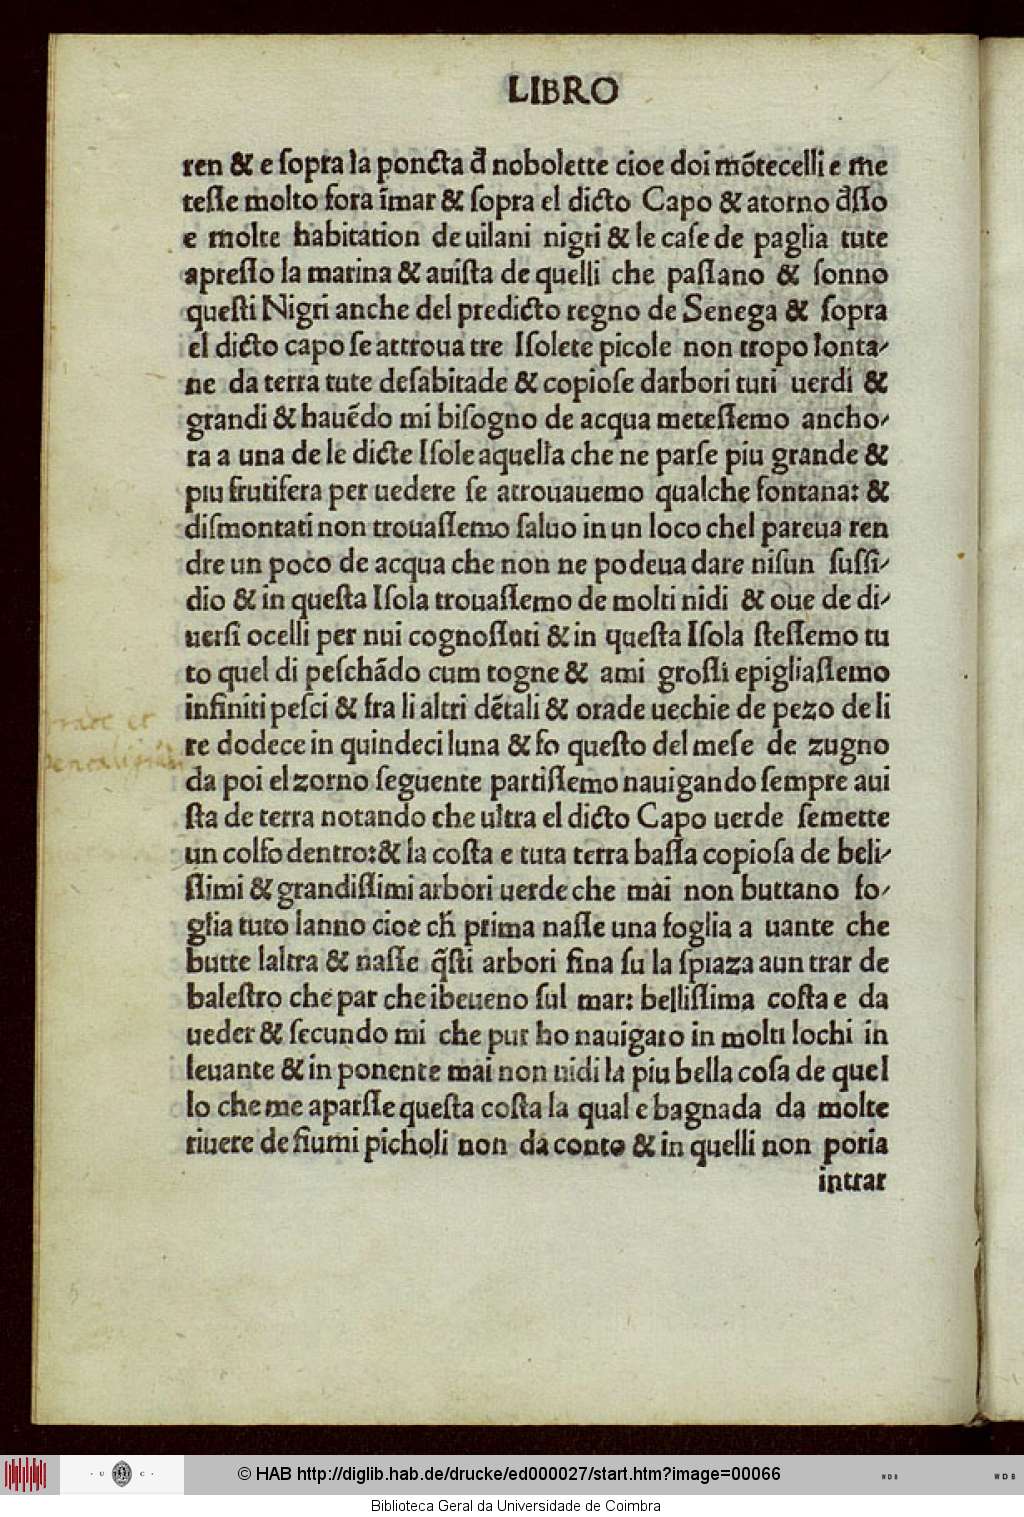 LIBRO
ren & e ſopra la poncta đ nobolette cioe doi mōtecelli e me
teſſe molto fora īmar & ſopra el dicto Capo & atorno đſſo
e molte habitation de uilani nigri & le caſe de paglia tute
apreſſo la marina & auiſta de quelli che paſſano & ſonno
queſti Nigri anche del predicto regno de Senega & ſopra
el dicto capo ſe attroua tre Iſolete picole non tropo lonta-
ne da terra tute deſabitade & copioſe darbori tuti uerdi &
grandi & hauēdo mi biſogno de acqua meteſſemo ancho-
ra a una de le dicte Iſole aquella che ne parſe piu grande &
piu frutifera per uedere ſe atrouauemo qualche fontana: &
diſmontati non trouaſſemo ſaluo in un loco chel pareua ren
dre un poco de acqua che non ne podeua dare niſun ſuſſi-
dio & in queſta Iſola trouaſſemo de molti nidi & oue de di-
uerſi ocelli per nui cognoſſuti & in queſta Iſola ſteſſemo tu
to quel di peſchādo cum togne & ami groſſi epigliaſſemo
infiniti peſci & fra li altri dētali & orade uechie de pezo de li
re dodece in quindeci luna & fo queſto del meſe de zugno
da poi el zorno ſeguente partiſſemo nauigando ſempre aui
ſta de terra notando che ultra el dicto Capo uerde ſemette
un colfo dentro: & la coſta e tuta terra baſſa copioſa de beli-
ſſimi & grandiſſimi arbori uerde che mai non buttano fo-
glia tuto lanno cioe cħ prima naſſe una foglia a uante che
butte laltra & naſſe q̄ſti arbori fina ſu la ſpiaza aun trar de
baleſtro che par che ibeueno ſul mar: belliſſima coſta e da
ueder & ſecundo mi che pur ho nauigato in molti lochi in
leuante & in ponente mai non uidi la piu bella coſa de quel
lo che me aparſſe queſta coſta la qual e bagnada da molte
riuere de fiumi picholi non da conto & in quelli non poria
intrar
· U C ·
© HAB http://diglib.hab.de/drucke/ed000027/start.htm?image=00066
WDB
WDB
Biblioteca Geral da Universidade de Coimbra